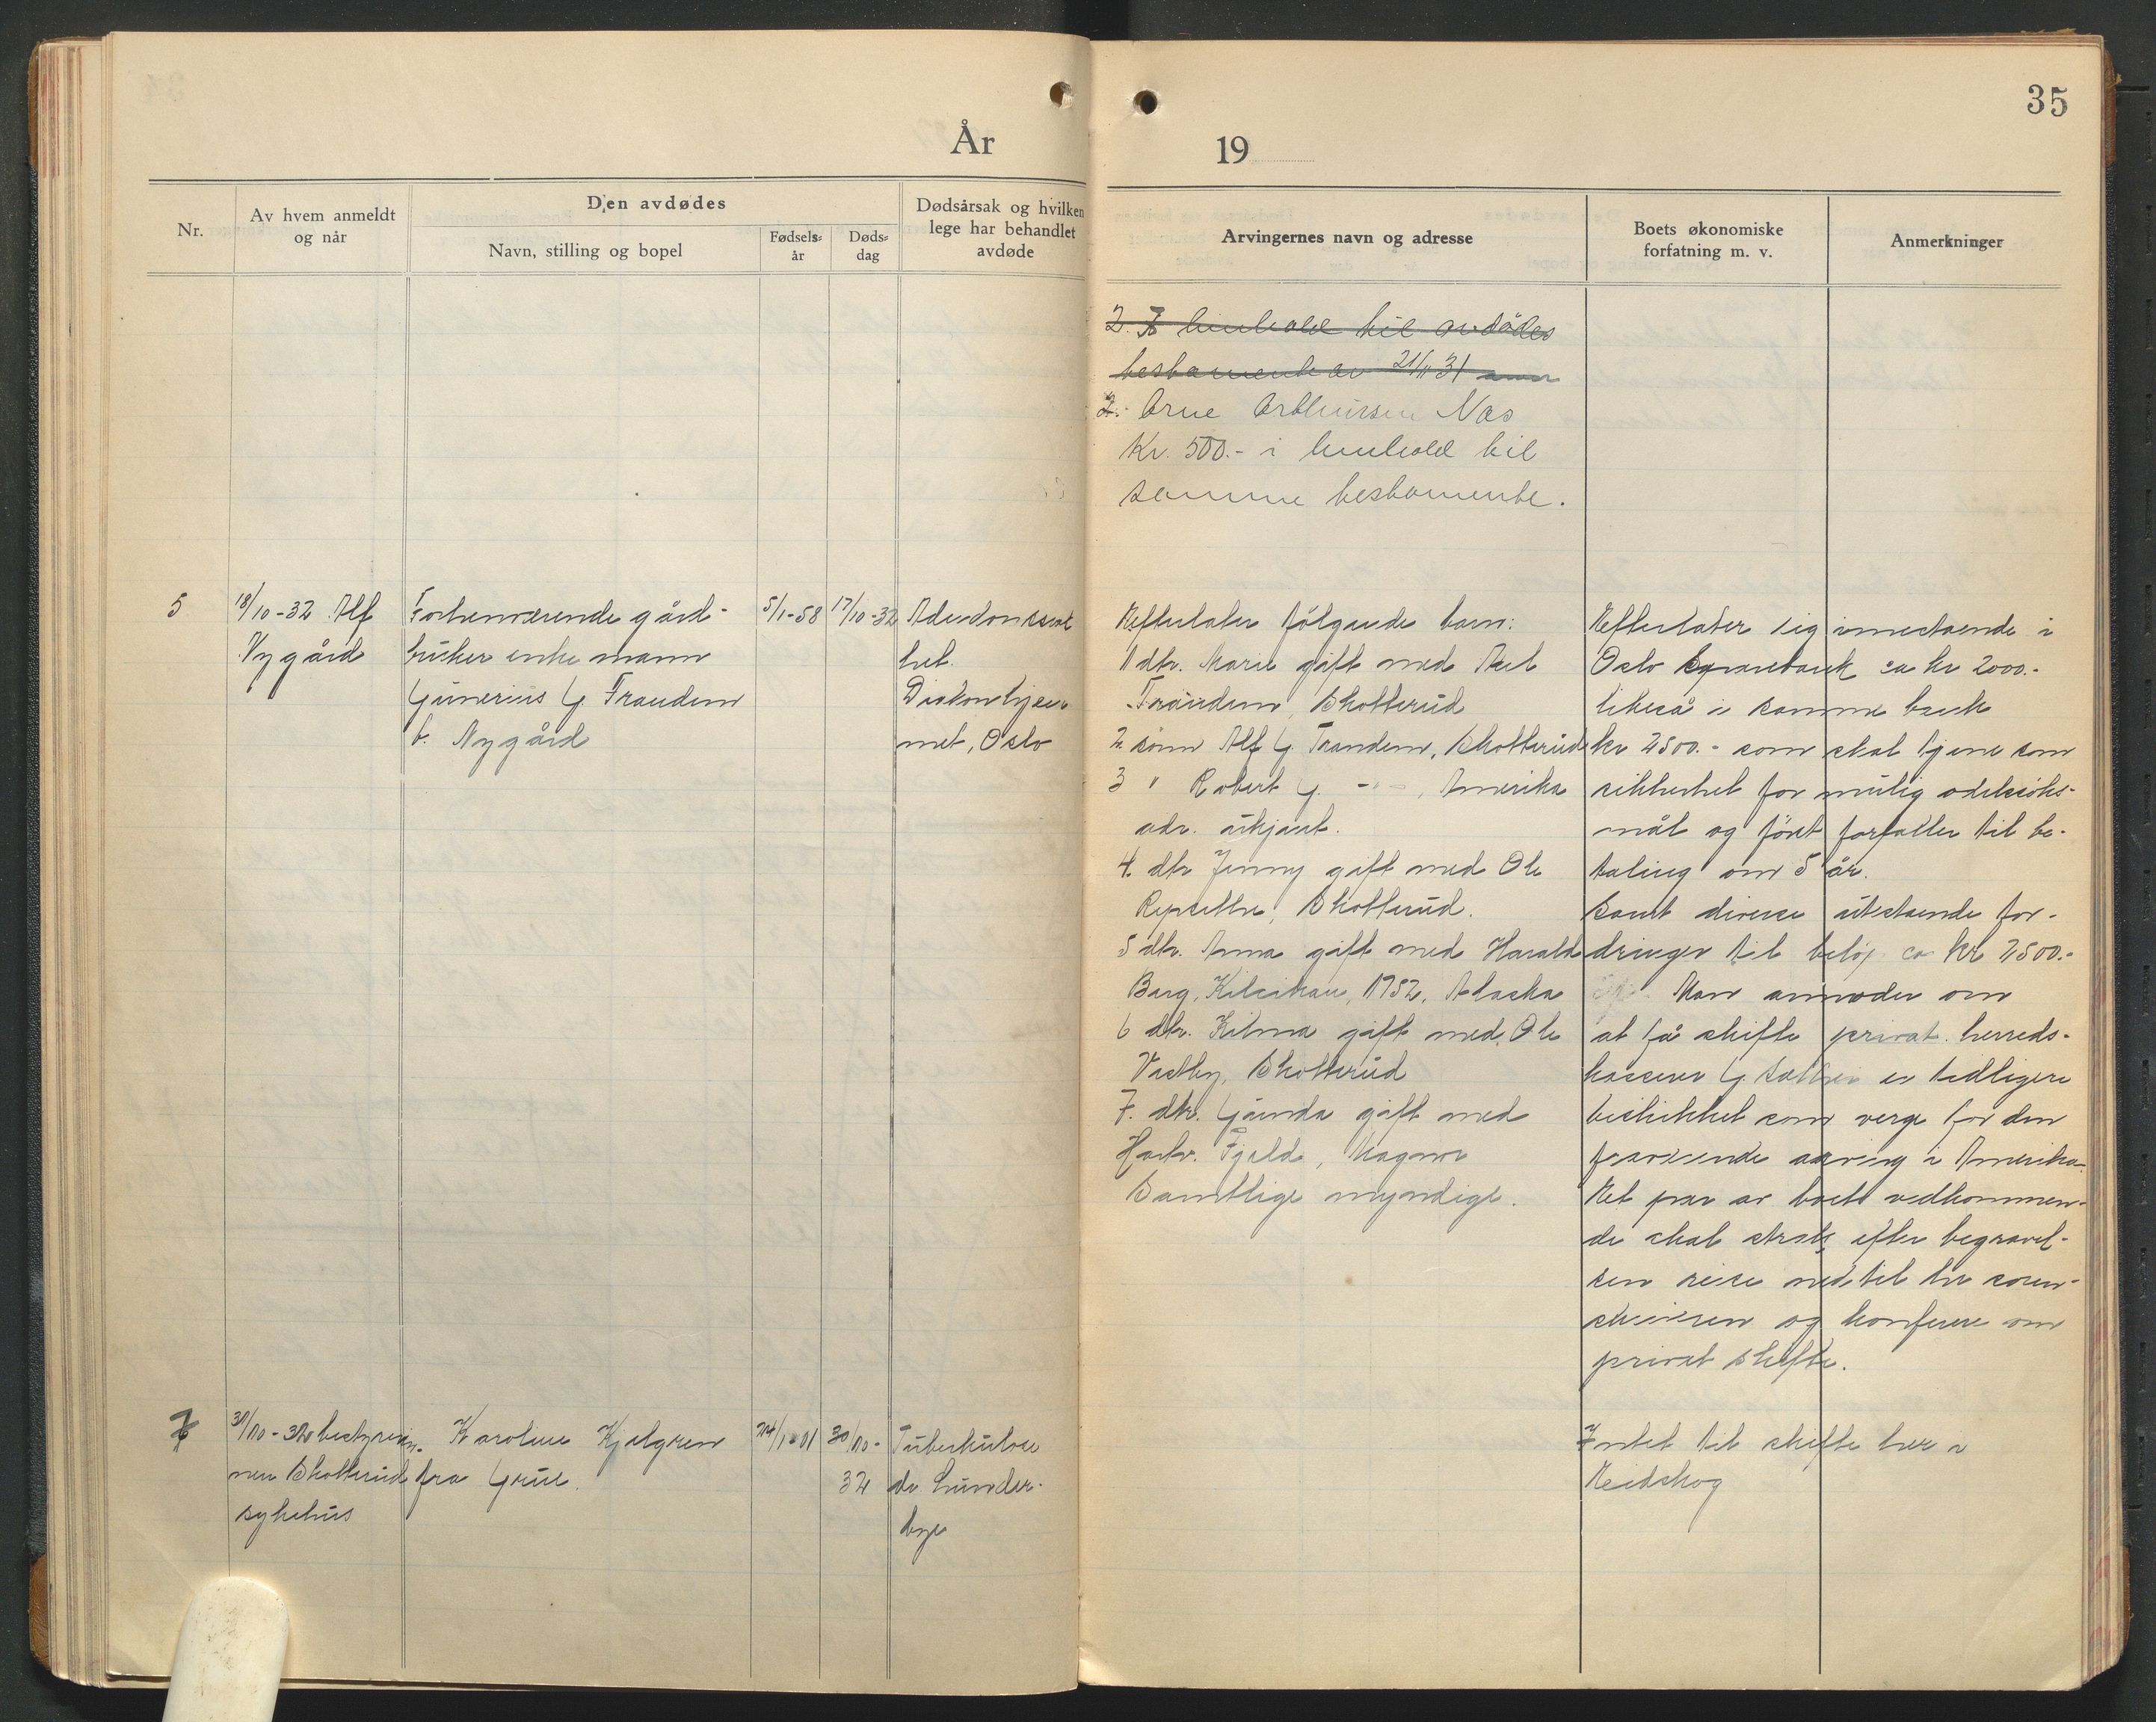 35
År
19
Nr.
Av hvem anmeldt
og når
Den avdødes
Navn, stilling og bopel
Fødsels-
år
Døds-
dag
Dødsårsak og hvilken
lege har behandlet
avdøde
Arvingernes navn og adresse
Boets økonomiske
forfatning m. v.
Anmerkninger
2. I henhold til avdödes
testamente av 21/11 31
2. Arne Arthursen Næs
Kr. 500.- i henhold til
samme testamente.
5
18/10-32 Alf
Nygård
Forhenværende gård-
bruker enkemann
Gunerius G. Traudem
b. Nygård
5/1-58
17/10-32
Alderdomssvak
het.
Diakonhjem-
met, Oslo
Efterlater følgende barn:
1 dtr. Marie gift med Axel
Traudem, Skotterud
2 sönn Alf G. Traudem, Skotterud
3 " Robert G. - " - , Amerika
adr. ukjent.
4. dtr Jenny gift med Ole
Skotterud.
5 dtr. Anna gift med Harald
Berg, 1752, Alaska
6 dtr. Hilma gift med Ole
Vestby, Skotterud
7. dtr. Gunda gift med
Fjeld, Magnor
Samtlige myndige.
Efterlater sig innestående i
Oslo Sparebank ca kr 2000.-
likeså i samme bank
kr 2500.- som skal tjene som
sikkerhet for mulig odelssöks-
mål og först forfaller til be-
taling om 5 år.
Samt diverse utestående for-
dringer til beløp ca kr 2500.-
Man anmoder om
at få skifte privat. herreds-
kasserer G. Sæther er tidligere
beskikket som verge for den
fraværende arving i Amerika.
Et par av boets vedkommen-
de skal straks efter begravel-
sen reise ned til hr soren-
skriveren og konferere om
privat skifte.
6
31/10-32 bestyrerin-
nen Skotterud
sykehus
Karoline Kjelgren
fra Grue.
24/1-01
30/10-
32
Tuberkulose
dr Lunder-
bye
Intet til skifte her i
Eidskog